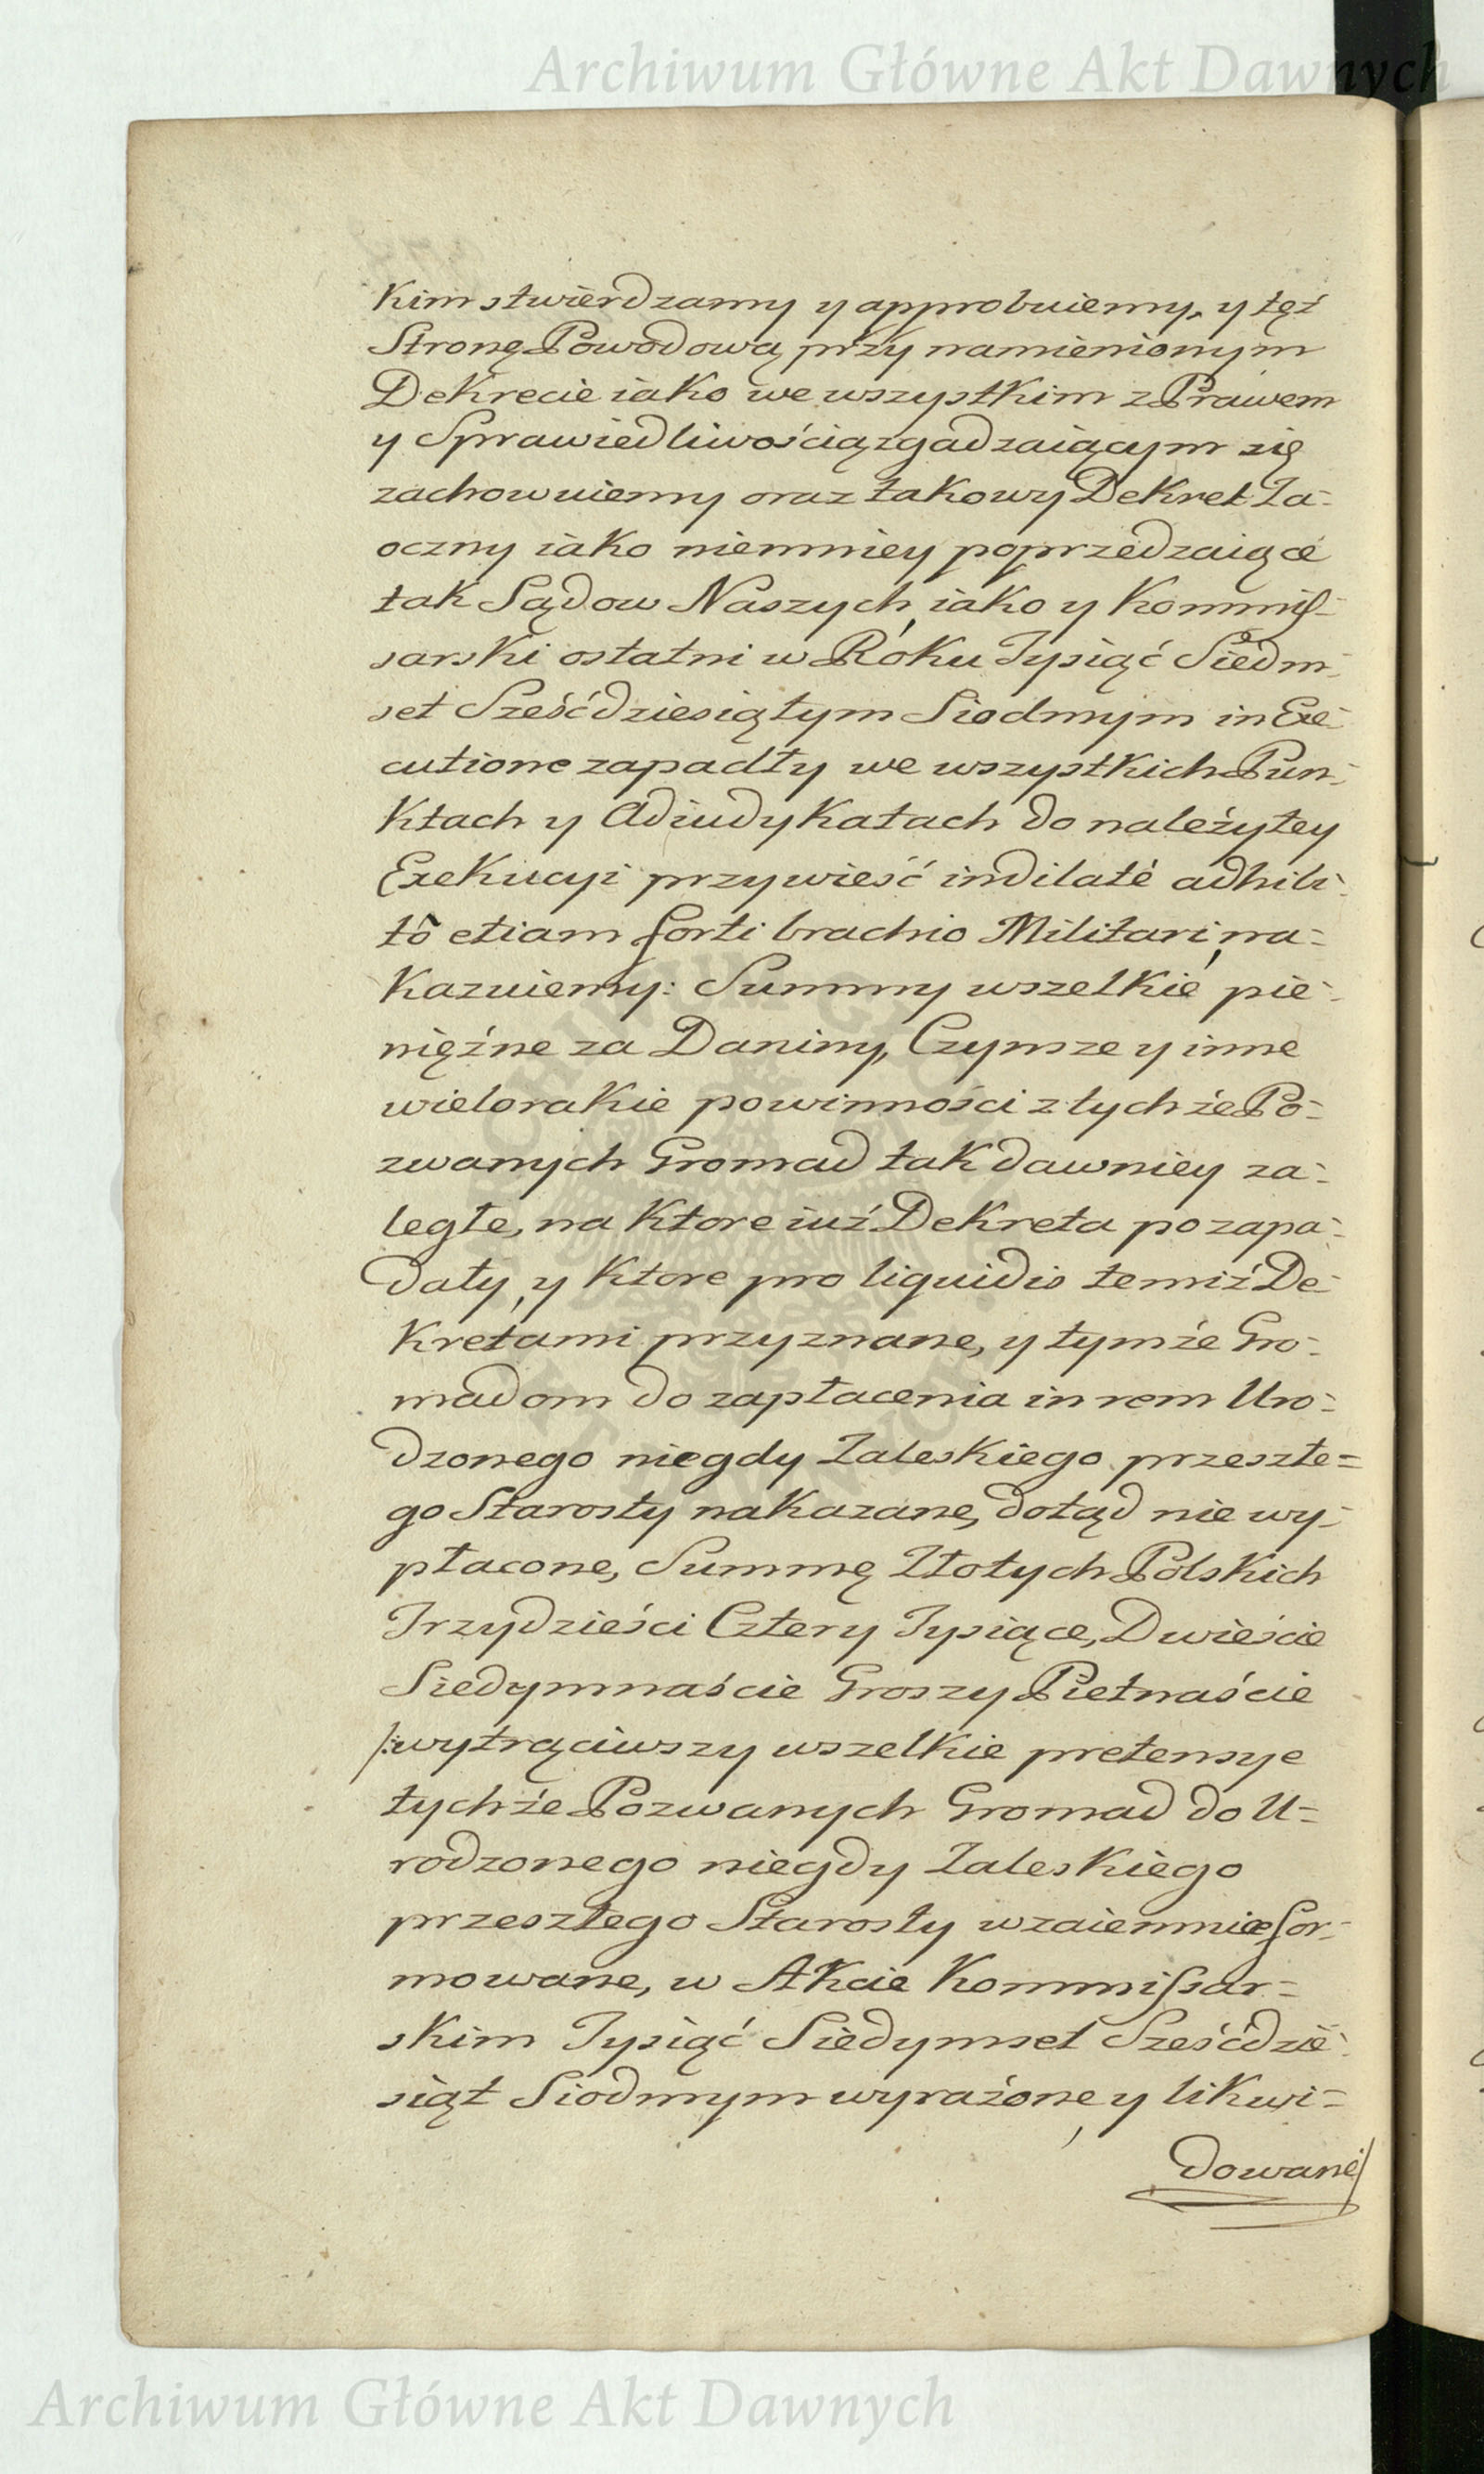 Archiwum Główne Akt Dawnych
kim stwierdzamy y approbuiemy, y tęż
Stronę Powodową przy namienionym
Dekrecie iako we wszystkim z Prawem
y Sprawiedliwością zgadzaiącym się
zachowuiemy oraz takowy Dekret Za-
oczny iako niemniey poprzedzaiące
tak Sądow Naszych, iako y Kommis-
sarski ostatni w Roku Tysiąć Siedm-
set Sześćdziesiątym Siodmym in Exe-
cutione zapadły we wszystkich Pun-
ktach y Adiudykatach do należytey
Exekucyi przywieść indilatè adhibi-
tô etiam forti brachio Militari, na-
kazuiemy: Summy wszelkie pie-
niężne za Daniny, Czynsze y inne
wielorakie powinności z tychże Po-
zwanych Gromad tak dawniey za-
ległe, na ktore iuż Dekreta pozapa-
dały, y ktore pro liquidis temiż De-
kretami przyznane, y tymże Gro-
madom do zapłacenia in rem Uro-
dzonego niegdy Zaleskiego przeszłe-
go Starosty nakazane, dotąd nie wy-
płacone, Summę Złotych Polskich
Trzydzieści Cztery Tysiące, Dwieście
Siedymnaście Groszy Pietnaście
/:wytrąciwszy wszelkie pretensye
tychże Pozwanych Gromad do U-
rodzonego niegdy Zaleskiego
przeszłego Starosty wzaiemnie for-
mowane, w Akcie Kommissar-
skim Tysiąć Siedymset Sześćdzie-
siąt Siodmym wyrażone, y likwi-
dowane/
Archiwum Główne Akt Dawnych